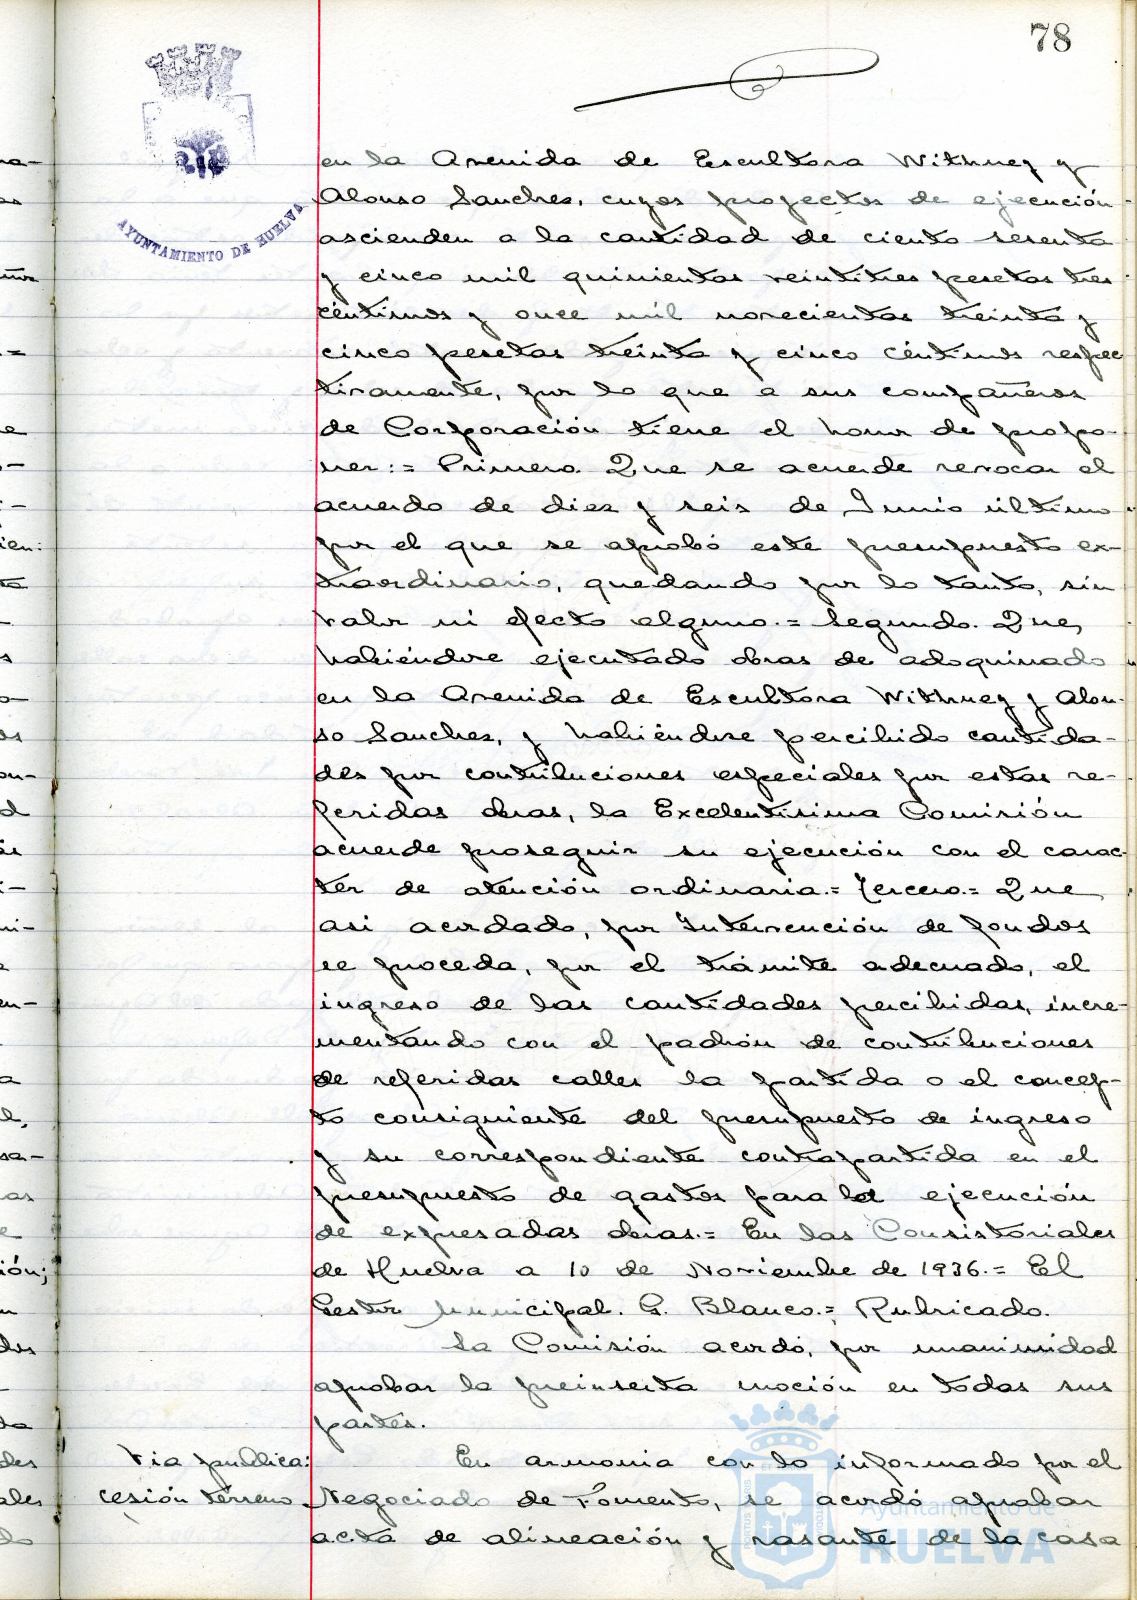 78
AYUNTAMIENTO DE HUELVA
en la Avenida de Escultora Withney y
Alonso Sanches, cuyos proyectos de ejecución
ascienden a la cantidad de ciento sesenta
y cinco mil quinientas veintitres pesetas tres
céntimos y once mil novecientas treinta y
cinco pesetas treinta y cinco céntimos respec
tivamente, por lo que a sus compañeros
de Corporación tiene el honor de propo-
ner: = Primero. Que se acuerde revocar el
acuerdo de diez y seis de Junio último
por el que se aprobó este presupuesto ex-
traordinario, quedando por lo tanto, sin
valor ni efecto alguno. = Segundo. Que,
habiéndose ejecutado obras de adoquinado
en la Avenida de Escultora Withney y Alon-
so Sanches, y habiéndose percibido cantida-
des por contribuciones especiales por estas re-
feridas obras, la Excelentísima Comisión
acuerde proseguir su ejecución con el carac-
ter de atención ordinaria. = Tercero. = Que
asi acordado, por Intervención de fondos
se proceda, por el trámite adecuado, el
ingreso de las cantidades percibidas, incre-
mentando con el padrón de contribuciones
de referidas calles la partida o el concep-
to consiguiente del presupuesto de ingreso
y su correspondiente contrapartida en el
presupuesto de gastos para la ejecución
de expresadas obras. = En las Consistoriales
de Huelva a 10 de Noviembre de 1936. = El
Gestor Municipal. G. Blanco. = Rubricado.
La Comisión acordó, por unanimidad
aprobar la preinserta moción en todas sus
partes.
Via pública: En armonia con lo informado por el
cesión terreno Negociado de Fomento, se acordó aprobar
acta de alineación y rasante de la casa
Ayuntamiento de
HUELVA